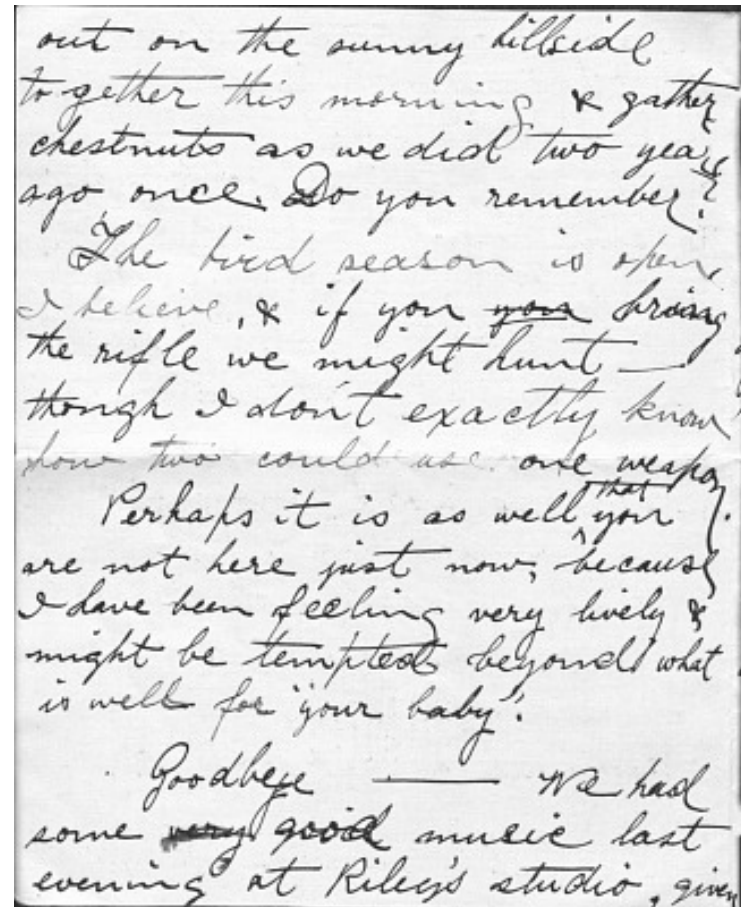 out on the sunny hillside
together this morning & gather
chestnuts as we did two years
ago, once. Do you remember?
The bird season is open,
I believe, & if you your bring
the rifle we might hunt —
though I don't exactly know
how two could use one weapon.
Perhaps it is as well that you
are not here just now, because
I have been feeling very lively &
might be tempted beyond what
is well for "your baby".
Goodbye — We had
some very good music last
evening at Riley's studio, given